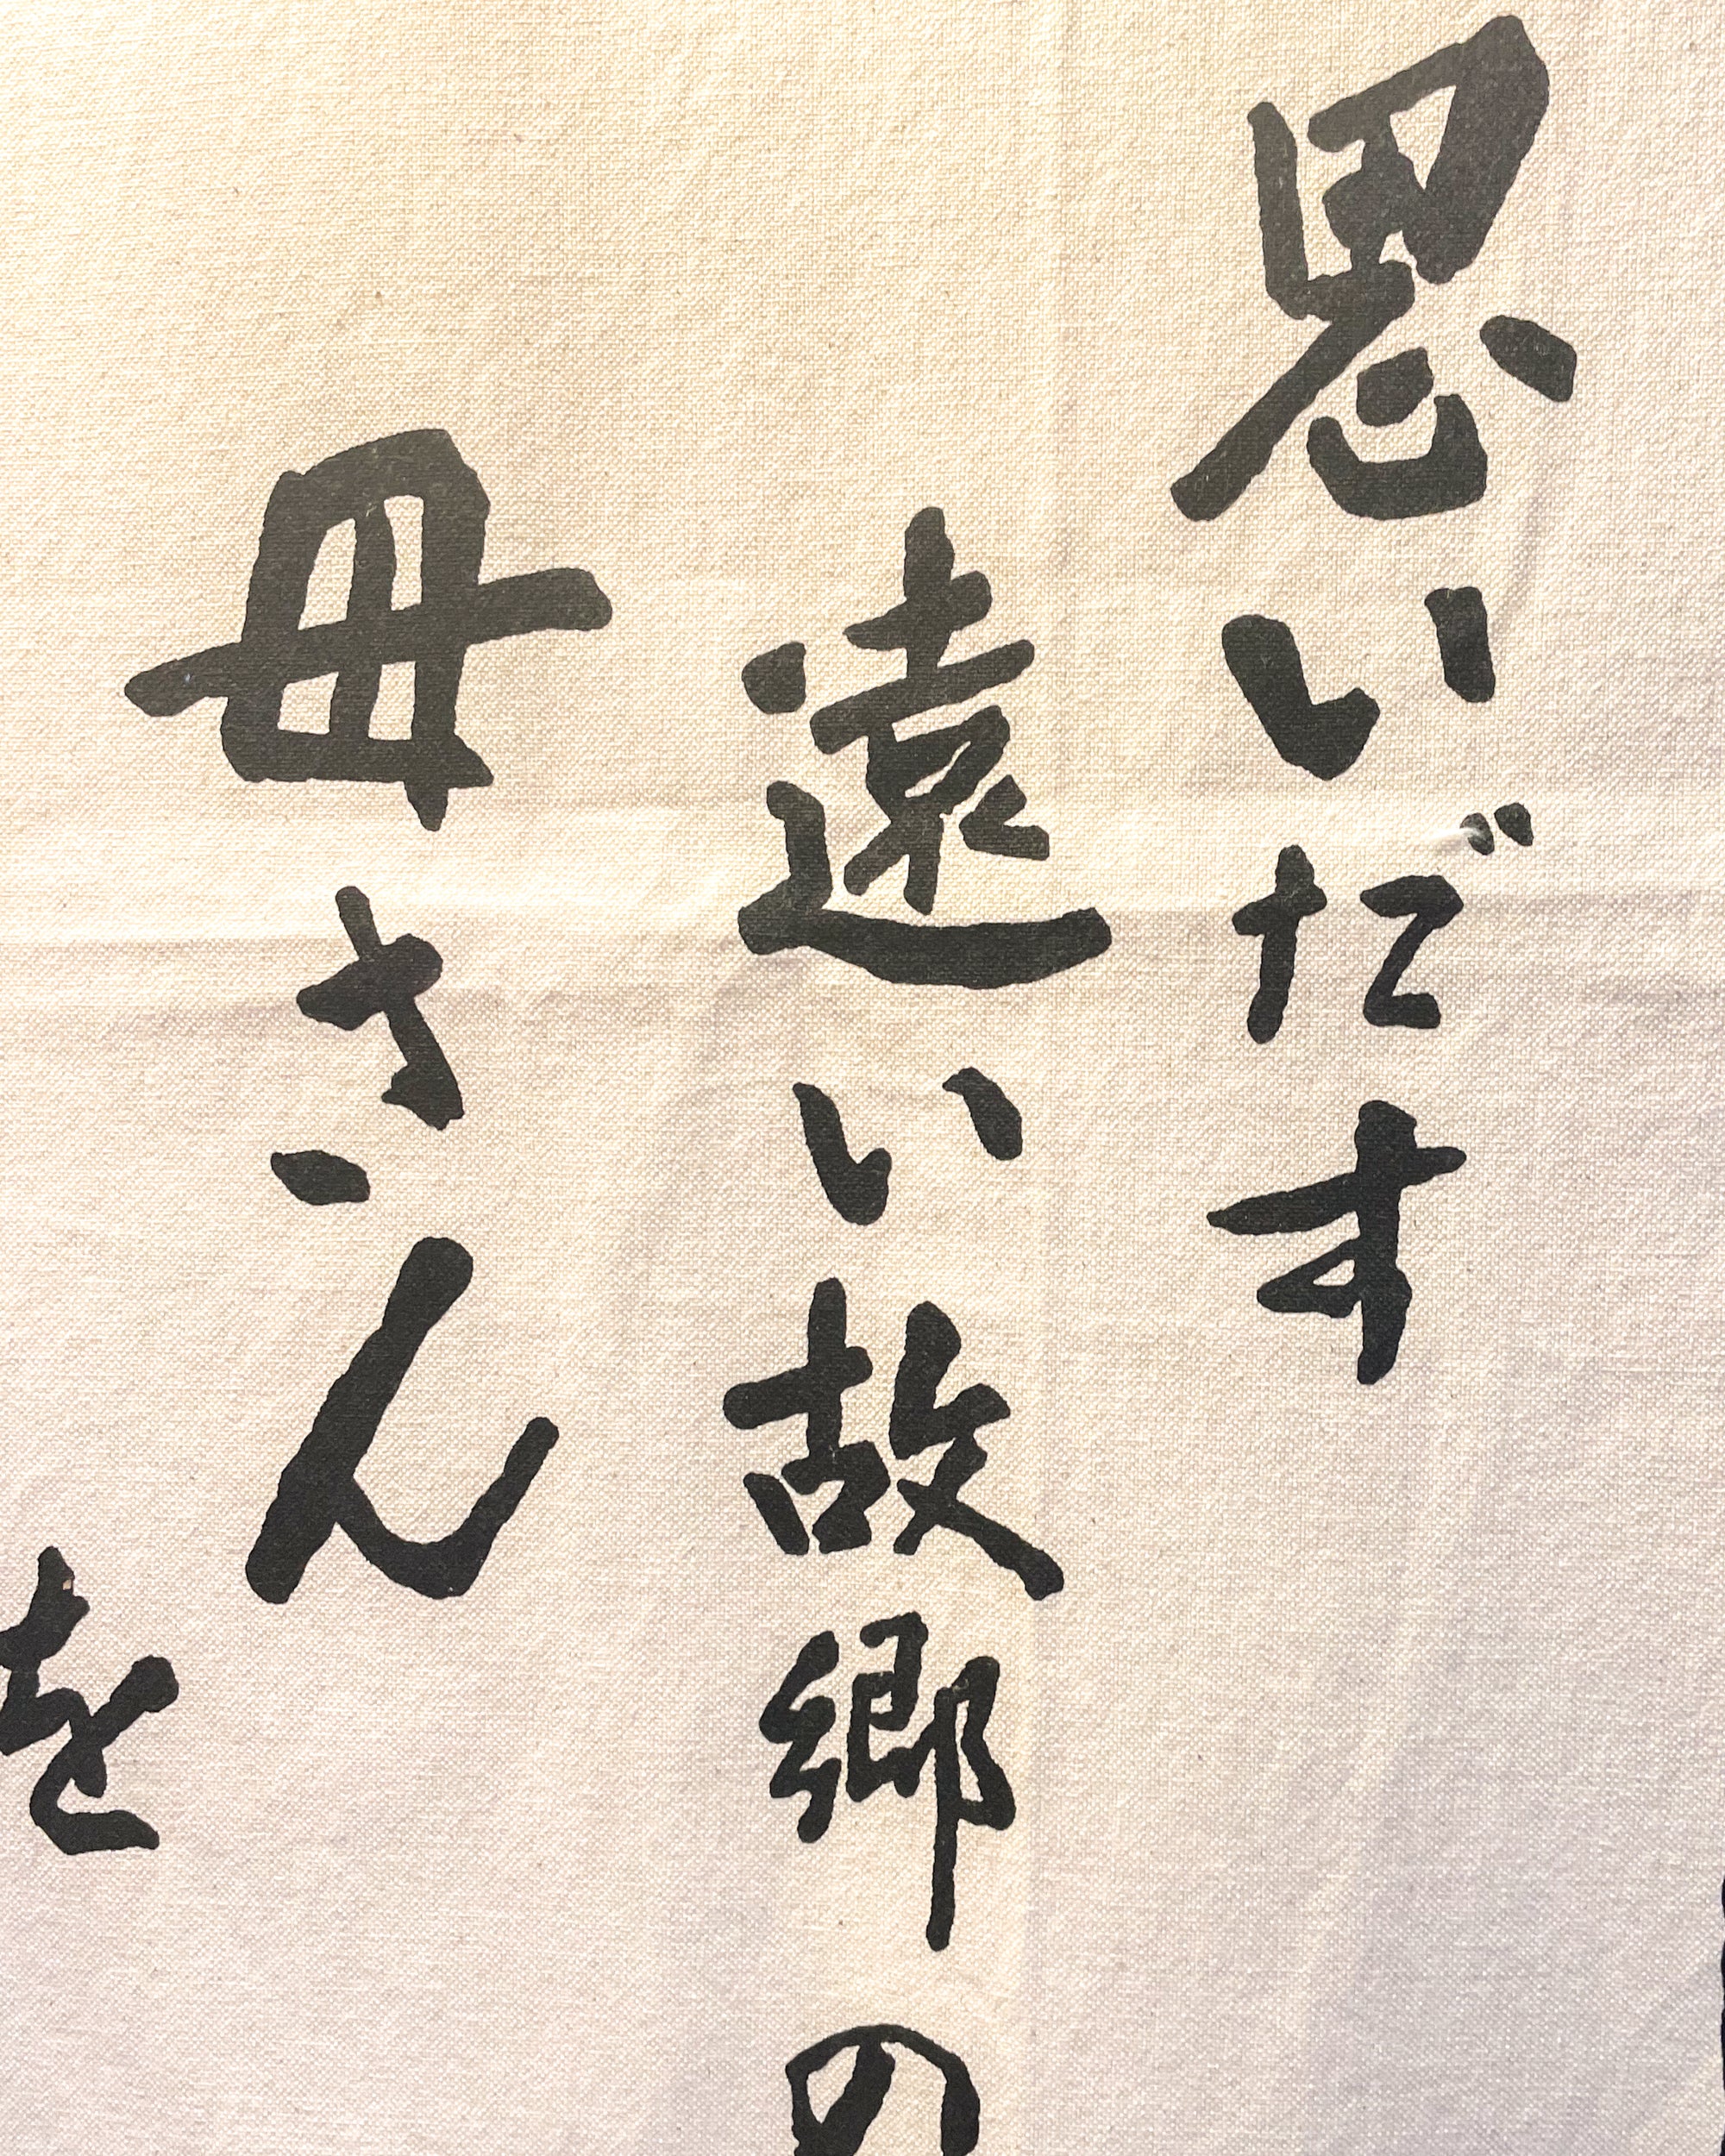 思いだす
遠い故郷の
母さん
を